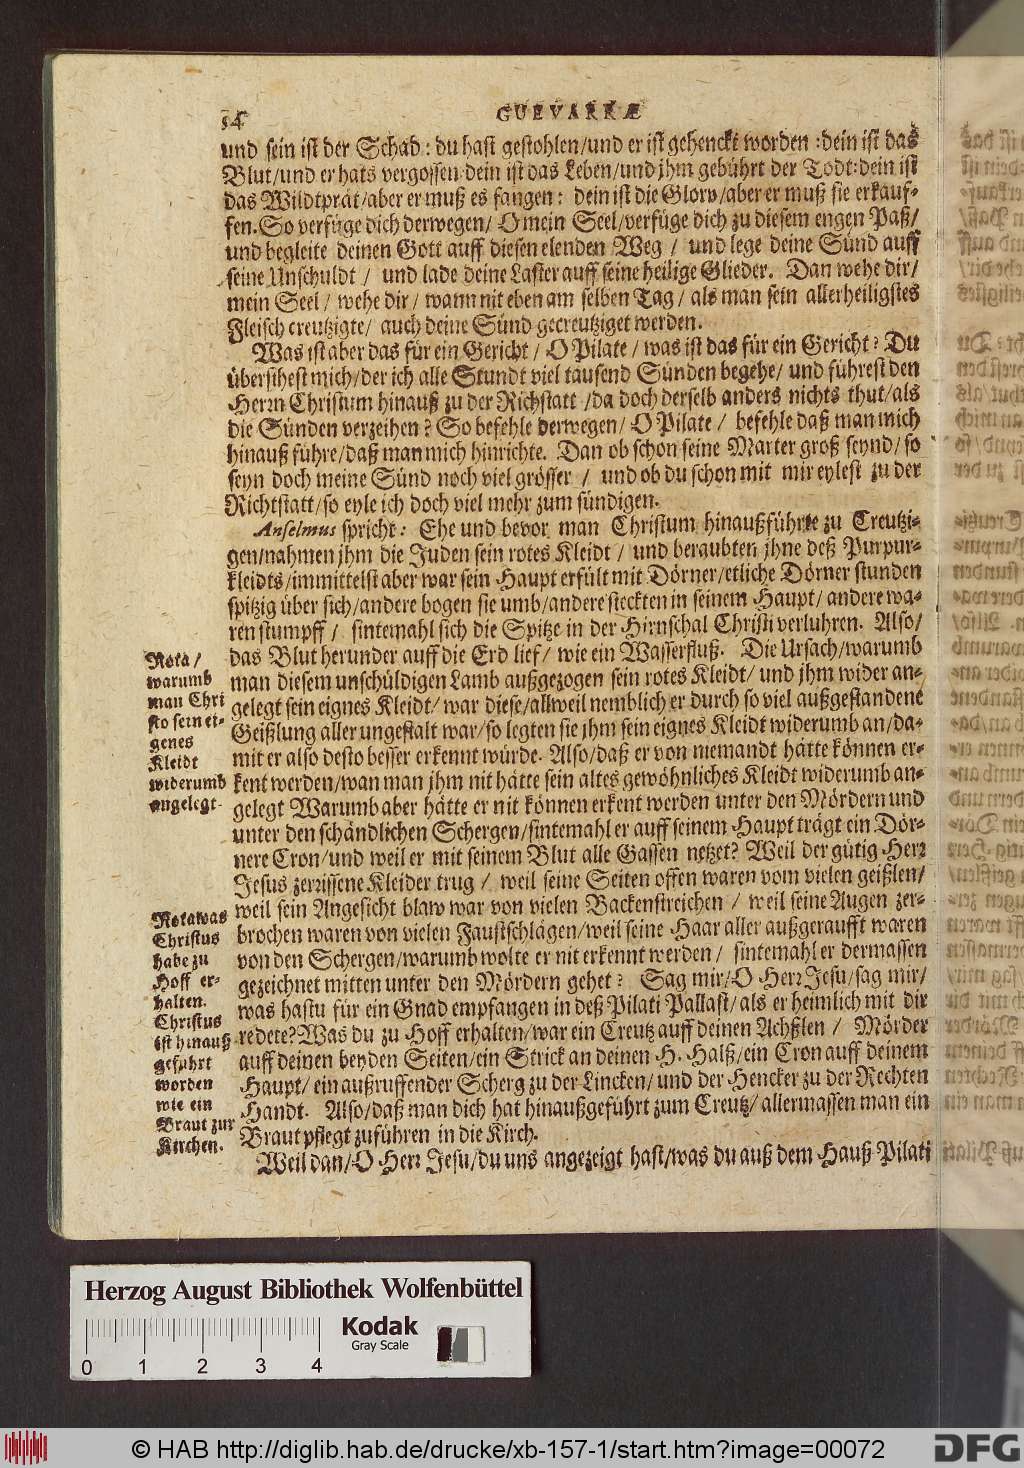 54
GUEVARRÆ
und sein ist der Schad: du hast gestohlen/und er ist gehenckt worden: dein ist das
Blut/und er hats vergossen: dein ist das Leben/und jhm gebührt der Todt: dein ist
das Wildtprät/aber er muß es fangen: dein ist die Glory/aber er muß sie erkauf-
fen. So verfüge dich derwegen/ O mein Seel/verfüge dich zu diesem engen Paß/
und begleite deinen Gott auff diesen elenden Weg / und lege deine Sünd auff
seine Unschuldt / und lade deine Laster auff seine heilige Glieder. Dan wehe dir/
mein Seel / wehe dir / wann nit eben am selben Tag / als man sein allerheiligstes
Fleisch creutzigte/ auch deine Sünd gecreutziget werden.
Was ist aber das für ein Gericht / O Pilate / was ist das für ein Gericht? Du
übersihest mich/der ich alle Stundt viel tausend Sünden begehe/ und führest den
Herrn Christum hinauß zu der Richstatt /da doch derselb anders nichts thut/als
die Sünden verzeihen? So befehle derwegen/ O Pilate / befehle daß man mich
hinauß führe/daß man mich hinrichte. Dan ob schon seine Marter groß seynd/ so
seyn doch meine Sünd noch viel grösser / und ob du schon mit mir eylest zu der
Richtstatt/so eyle ich doch viel mehr zum sündigen.
Anselmus spricht: Ehe und bevor man Christum hinaußführte zu Creutzi-
gen/nahmen jhm die Juden sein rotes Kleidt / und beraubten jhne deß Purpur-
kleidts/immittelst aber war sein Haupt erfült mit Dörner/etliche Dörner stunden
spitzig über sich/andere bogen sie umb/andere steckten in seinem Haupt/ andere wa-
ren stumpff / sintemahl sich die Spitze in der Hirnschal Christi verluhren. Also/
das Blut herunder auff die Erd lief/ wie ein Wasserfluß. Die Ursach/warumb
man diesem unschüldigen Lamb außgezogen sein rotes Kleidt/ und jhm wider an-
gelegt sein eignes Kleidt/ war diese/allweil nemblich er durch so viel außgestandene
Geißlung aller ungestalt war/so legten sie jhm sein eignes Kleidt widerumb an/da-
mit er also desto besser erkennt würde. Also/daß er von niemandt hätte können er-
kent werden/wan man jhm nit hätte sein altes gewöhnliches Kleidt widerumb an-
gelegt Warumb aber hätte er nit können erkent werden unter den Mördern und
unter den schändlichen Schergen/sintemahl er auff seinem Haupt trägt ein Dör-
nere Cron/und weil er mit seinem Blut alle Gassen netzet? Weil der gütig Herr
Jesus zerrissene Kleider trug / weil seine Seiten offen waren vom vielen geißlen/
weil sein Angesicht blaw war von vielen Backenstreichen / weil seine Augen zer-
brochen waren von vielen Faustschlägen/weil seine Haar aller außgeraufft waren
von den Schergen/warumb wolte er nit erkennt werden / sintemahl er dermassen
gezeichnet mitten unter den Mördern gehet? Sag mir/O Herr Jesu/sag mir/
was hastu für ein Gnad empfangen in deß Pilati Pallast/als er heimlich mit dir
redete? Was du zu Hoff erhalten/war ein Creutz auff deinen Achßlen / Mörder
auff deinen beyden Seiten/ein Strick an deinen H. Halß/ein Cron auff deinem
Haupt/ein außruffender Scherg zu der Lincken/und der Hencker zu der Rechten
Handt. Also/daß man dich hat hinaußgeführt zum Creutz/allermassen man ein
Braut pflegt zuführen in die Kirch.
Weil dan/O Herr Jesu/du uns angezeigt hast/was du auß dem Hauß Pilati
Nota/
warumb
man Chri
sto sein ei-
genes
Kleidt
widerumb
angelegt.
Nota was
Christus
habe zu
Hoff er-
halten.
Christus
ist hinauß
geführt
worden
wie ein
Braut zur
Kirchen.
Herzog August Bibliothek Wolfenbüttel
0 1 2 3 4
Kodak
Gray Scale
© HAB http://diglib.hab.de/drucke/xb-157-1/start.htm?image=00072
DFG